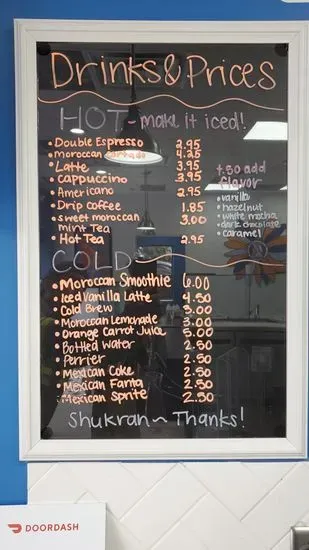 Drinks & Prices
HOT - make it iced!
• Double Espresso 2.95
• moroccan cortado 4.25
• Latte 3.95
• cappuccino 3.95
• Americano 2.95
• Drip coffee 1.85
• sweet moroccan mint Tea 3.00
• Hot Tea 2.95
+.50 add
flavor
• vanilla
• hazelnut
• white mocha
• dark chocolate
• caramel
COLD
• Moroccan Smoothie 6.00
• Iced Vanilla Latte 4.50
• Cold Brew 3.00
• Moroccan Lemonade 3.00
• Orange Carrot Juice 5.00
• Bottled Water 2.50
• Perrier 2.50
• Mexican Coke 2.50
• Mexican Fanta 2.50
• Mexican Sprite 2.50
Shukran ~ Thanks!
DOORDASH